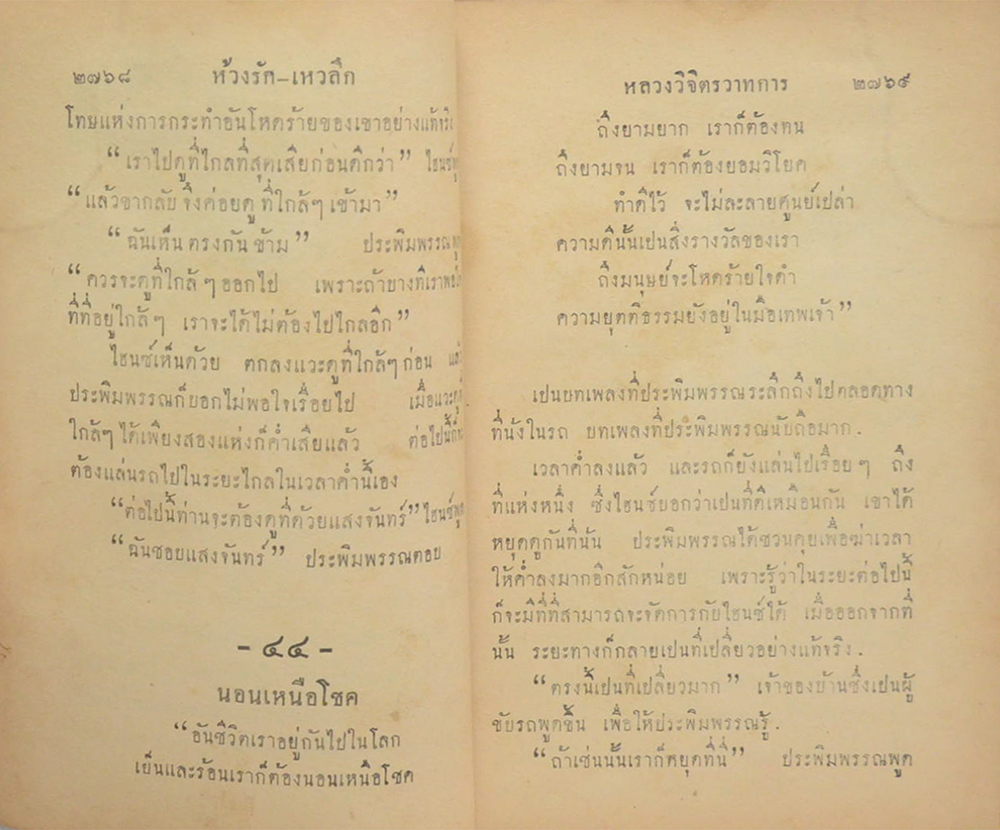 ๒๗๖๘ ห้วงรัก-เหวลึก
โทษแห่งการกระทำอันโหดร้ายของเขาอย่างแท้จริง
“เราไปดูที่ไกลที่สุดเสียก่อนดีกว่า” ไฮนซ์พูด
“แล้วขากลับ จึงค่อยดู ที่ใกล้ๆ เข้ามา”
“ฉันเห็น ตรงกัน ข้าม” ประพิมพรรณพูด
“ควรจะดูที่ใกล้ ๆ ออกไป เพราะถ้าบางทีเราพบ
ที่ที่อยู่ใกล้ๆ เราจะได้ไม่ต้องไปไกลอีก”
ไฮนซ์เห็นด้วย ตกลงแวะดูที่ใกล้ๆ ก่อน
ประพิมพรรณก็บอกไม่พอใจเรื่อยไป เมื่อแวะดู
ใกล้ๆ ได้เพียงสองแห่งก็ค่ำเสียแล้ว ต่อไปนี้
ต้องแล่นรถไปในระยะไกลในเวลาค่ำนี้เอง
“ต่อไปนี้ท่านจะต้องดูที่ด้วยแสงจันทร์” ไฮนซ์พูด
“ฉันชอบแสงจันทร์” ประพิมพรรณตอบ
- ๔๔ -
นอนเหนือโชค
“อันชีวิตเราอยู่กันไปในโลก
เย็นและร้อนเราก็ต้องนอนเหนือโชค
หลวงวิจิตรวาทการ ๒๗๖๙
ถึงยามยาก เราก็ต้องทน
ถึงยามจน เราก็ต้องยอมวิโยค
ทำดีไว้ จะไม่ละลายศูนย์เปล่า
ความดีนั้นเป็นสิ่งรางวัลของเรา
ถึงมนุษย์จะโหดร้ายใจดำ
ความยุตติธรรมยังอยู่ในมือเทพเจ้า”
เป็นบทเพลงที่ประพิมพรรณระลึกถึงไปตลอดทาง
ที่นั่งในรถ บทเพลงที่ประพิมพรรณนับถือมาก.
เวลาค่ำลงแล้ว และรถก็ยังแล่นไปเรื่อย ๆ ถึง
ที่แห่งหนึ่ง ซึ่งไฮนซ์บอกว่าเป็นที่ดีเหมือนกัน เขาได้
หยุดดูกันที่นั่น ประพิมพรรณได้ชวนคุยเพื่อฆ่าเวลา
ให้ค่ำลงมากอีกสักหน่อย เพราะรู้ว่าในระยะต่อไปนี้
ก็จะมีที่ที่สามารถจะจัดการกับไฮนซ์ได้ เมื่อออกจากที่
นั้น ระยะทางก็กลายเป็นที่เปลี่ยวอย่างแท้จริง.
“ตรงนี้เป็นที่เปลี่ยวมาก” เจ้าของบ้านซึ่งเป็นผู้
ขับรถพูดขึ้น เพื่อให้ประพิมพรรณรู้.
“ถ้าเช่นนั้นเราก็หยุดที่นี่” ประพิมพรรณพูด